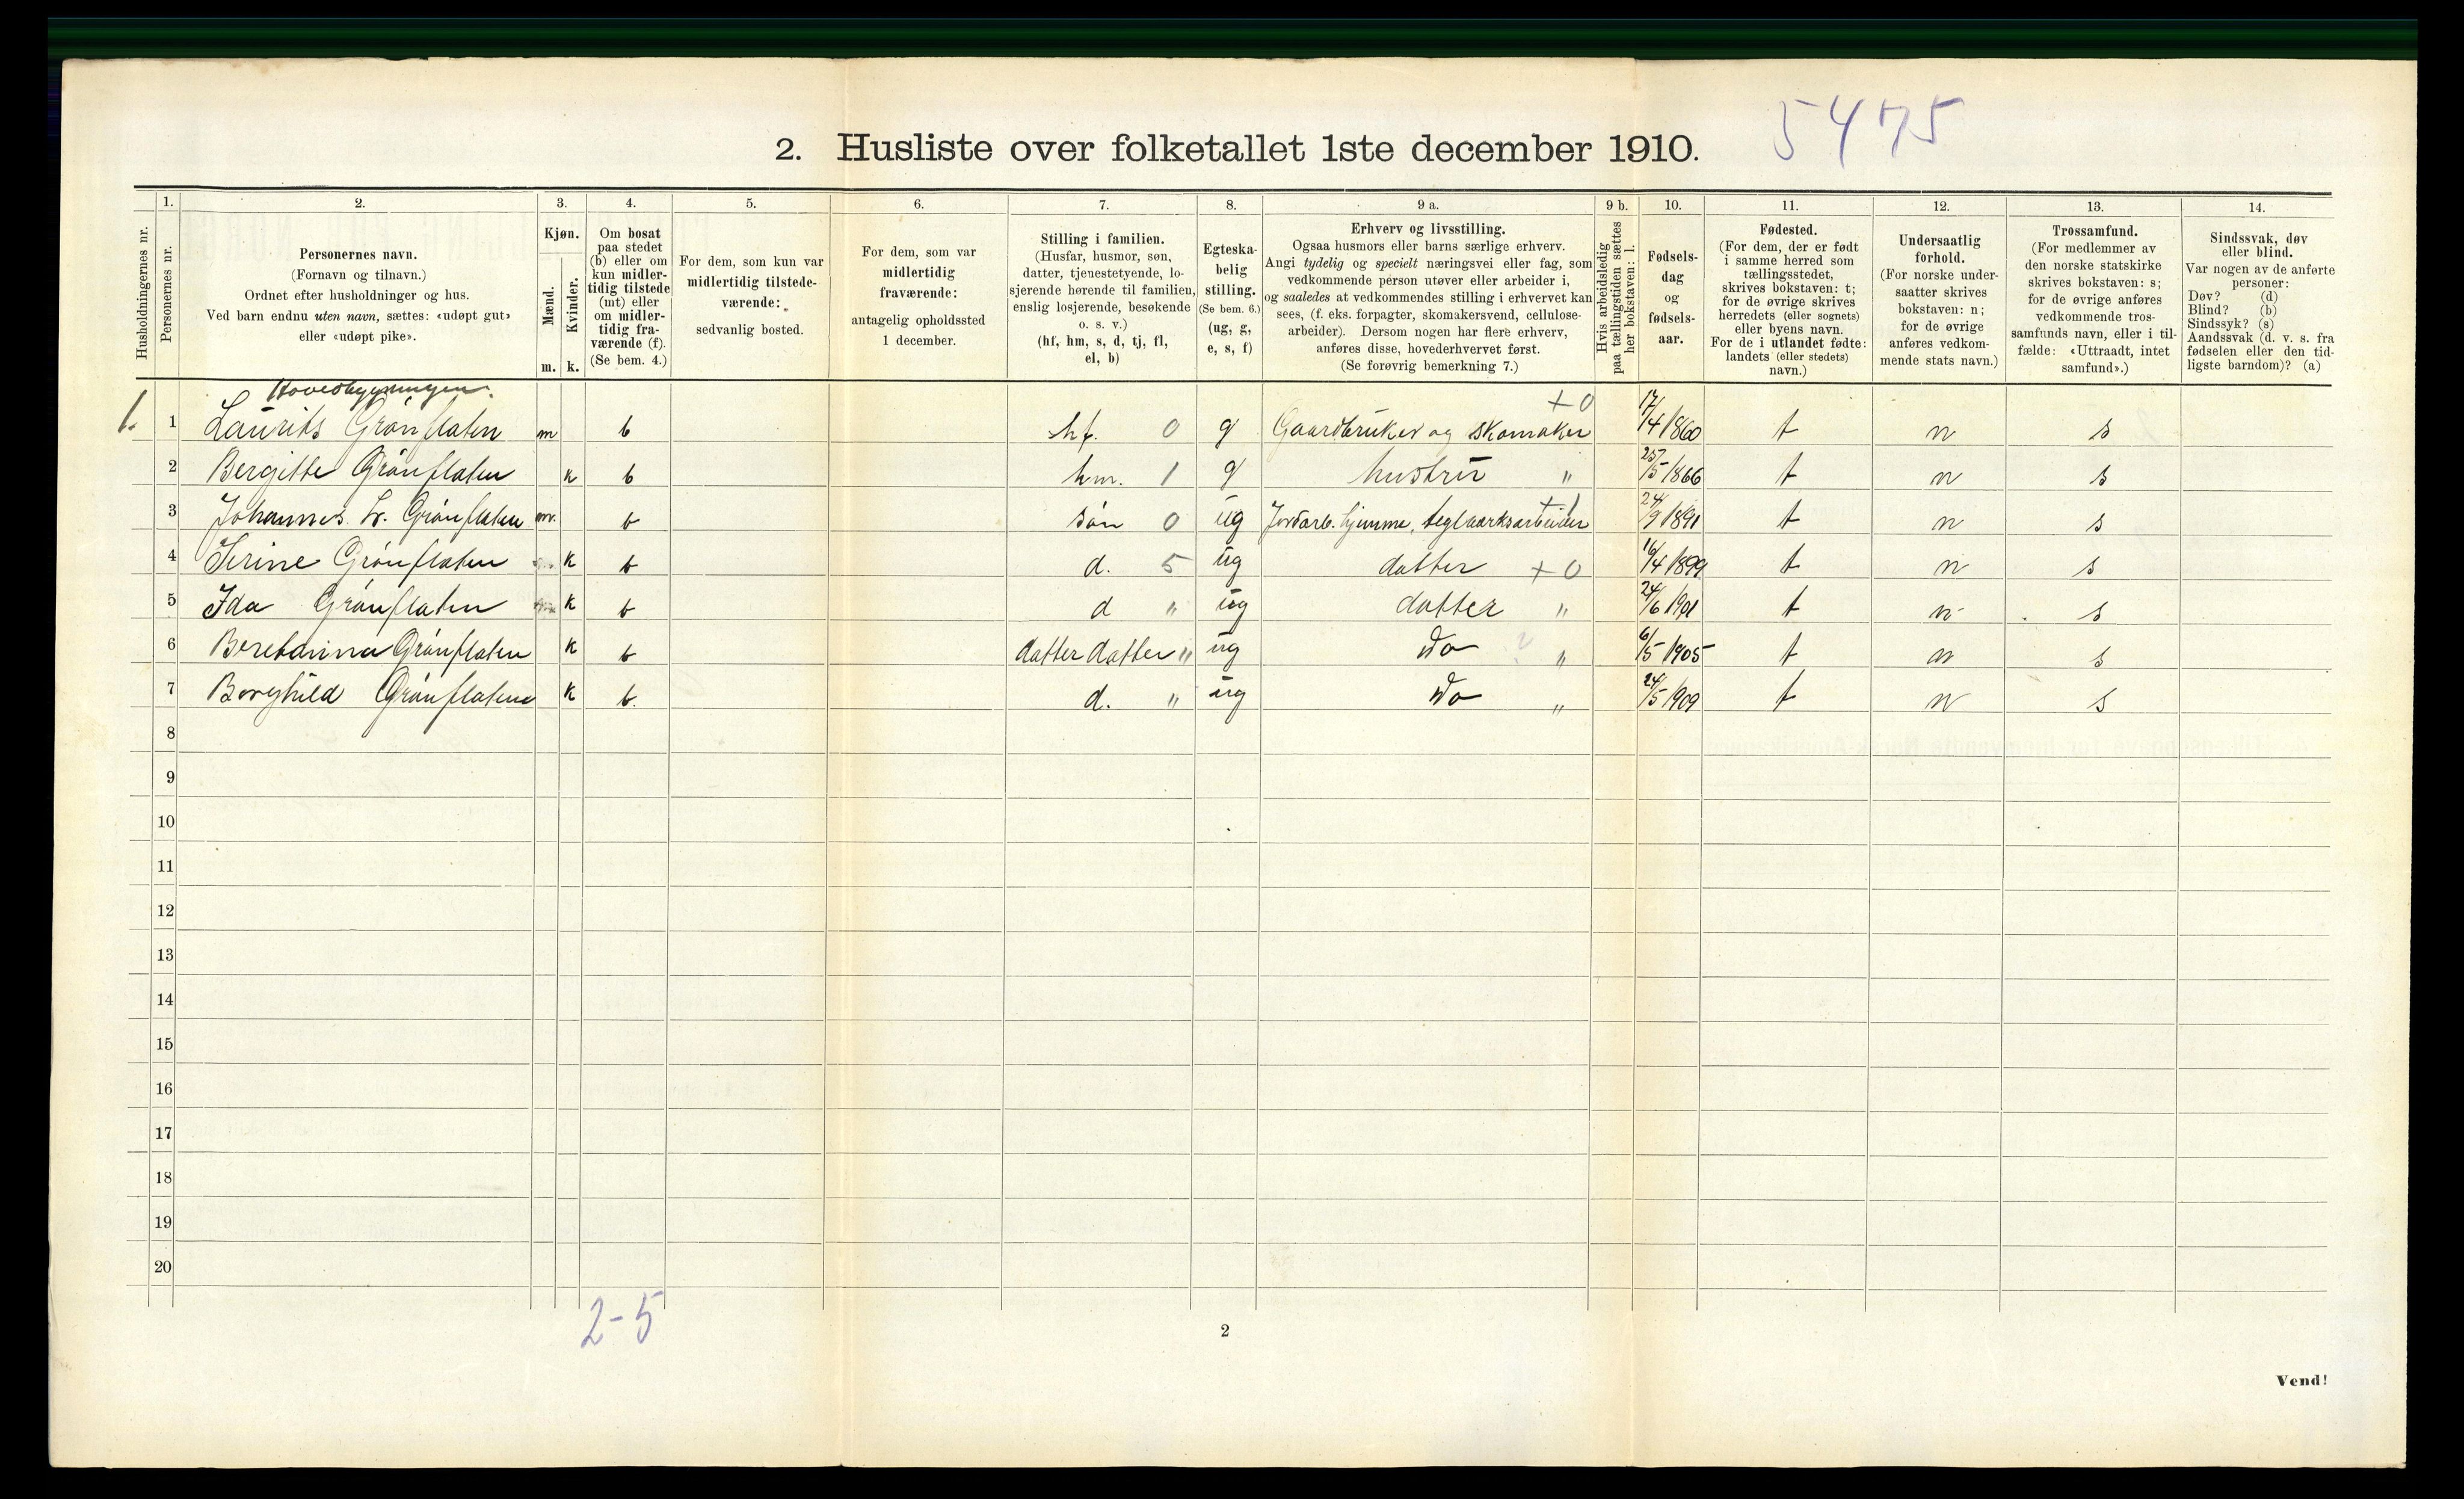 5475
2. Husliste over folketallet 1ste december 1910.
Husholdningernes nr.
1.
Personernes nr.
2.
Personernes navn.
(Fornavn og tilnavn.)
Ordnet efter husholdninger og hus.
Ved barn endnu uten navn, sættes: «udøpt gut»
eller «udøpt pike».
3.
Kjøn.
Mænd.
m.
Kvinder.
k.
4.
Om bosat
paa stedet
(b) eller om
kun midler-
tidig tilstede
(mt) eller
om midler-
tidig fra-
værende (f).
(Se bem. 4.)
5.
For dem, som kun var
midlertidig tilstede-
værende:
sedvanlig bosted.
6.
For dem, som var
midlertidig
fraværende:
antagelig opholdssted
1 december.
7.
Stilling i familien.
(Husfar, husmor, søn,
datter, tjenestetyende, lo-
sjerende hørende til familien,
enslig losjerende, besøkende
o. s. v.)
(hf, hm, s, d, tj, fl,
el, b)
8.
Egteska-
belig
stilling.
(Se bem. 6.)
(ug, g,
e, s, f)
9 a.
Erhverv og livsstilling.
Ogsaa husmors eller barns særlige erhverv.
Angi tydelig og specielt næringsvei eller fag, som
vedkommende person utøver eller arbeider i,
og saaledes at vedkommendes stilling i erhvervet kan
sees, (f. eks. forpagter, skomakersvend, cellulose-
arbeider). Dersom nogen har flere erhverv,
anføres disse, hovederhvervet først.
(Se forøvrig bemerkning 7.)
9 b.
Hvis arbeidsledig
paa tællingstiden sættes
her bokstaven: l.
10.
Fødsels-
dag
og
fødsels-
aar.
11.
Fødested.
(For dem, der er født
i samme herred som
tællingsstedet,
skrives bokstaven: t;
for de øvrige skrives
herredets (eller sognets)
eller byens navn.
For de i utlandet fødte:
landets (eller stedets)
navn.)
12.
Undersaatlig
forhold.
(For norske under-
saatter skrives
bokstaven: n;
for de øvrige
anføres vedkom-
mende stats navn.)
13.
Trossamfund.
(For medlemmer av
den norske statskirke
skrives bokstaven: s;
for de øvrige anføres
vedkommende tros-
samfunds navn, eller i til-
fælde: «Uttraadt, intet
samfund».)
14.
Sindssvak, døv
eller blind.
Var nogen av de anførte
personer:
Døv? (d)
Blind? (b)
Sindssyk? (s)
Aandssvak (d. v. s. fra
fødselen eller den tid-
ligste barndom)? (a)
Hovedbygningen.
1. 1 Laurits Grønflaten m b hf. 0 g Gaardbruker og skomaker +0 17/4 1860 t n s
2 Bergitte Grønflaten k b hm. 1 g hustru " 25/5 1866 t n s
3 Johannes L. Grønflaten m. b søn 0 ug Jordarb. hjemme, teglværksarbeider +1 24/9 1891 t n s
4 Serine Grønflaten k b d. 5 ug datter +0 16/4 1899 t n s
5 Ida Grønflaten k b d " ug datter " 24/6 1901 t n s
6 Beretanna Grønflaten k b datter datter " ug do ? " 6/5 1905 t n s
7 Borghild Grønflaten k b. d. " ug do " 24/5 1909 t n s
8
9
10
11
12
13
14
15
16
17
18
19
20
2-5
2
Vend!